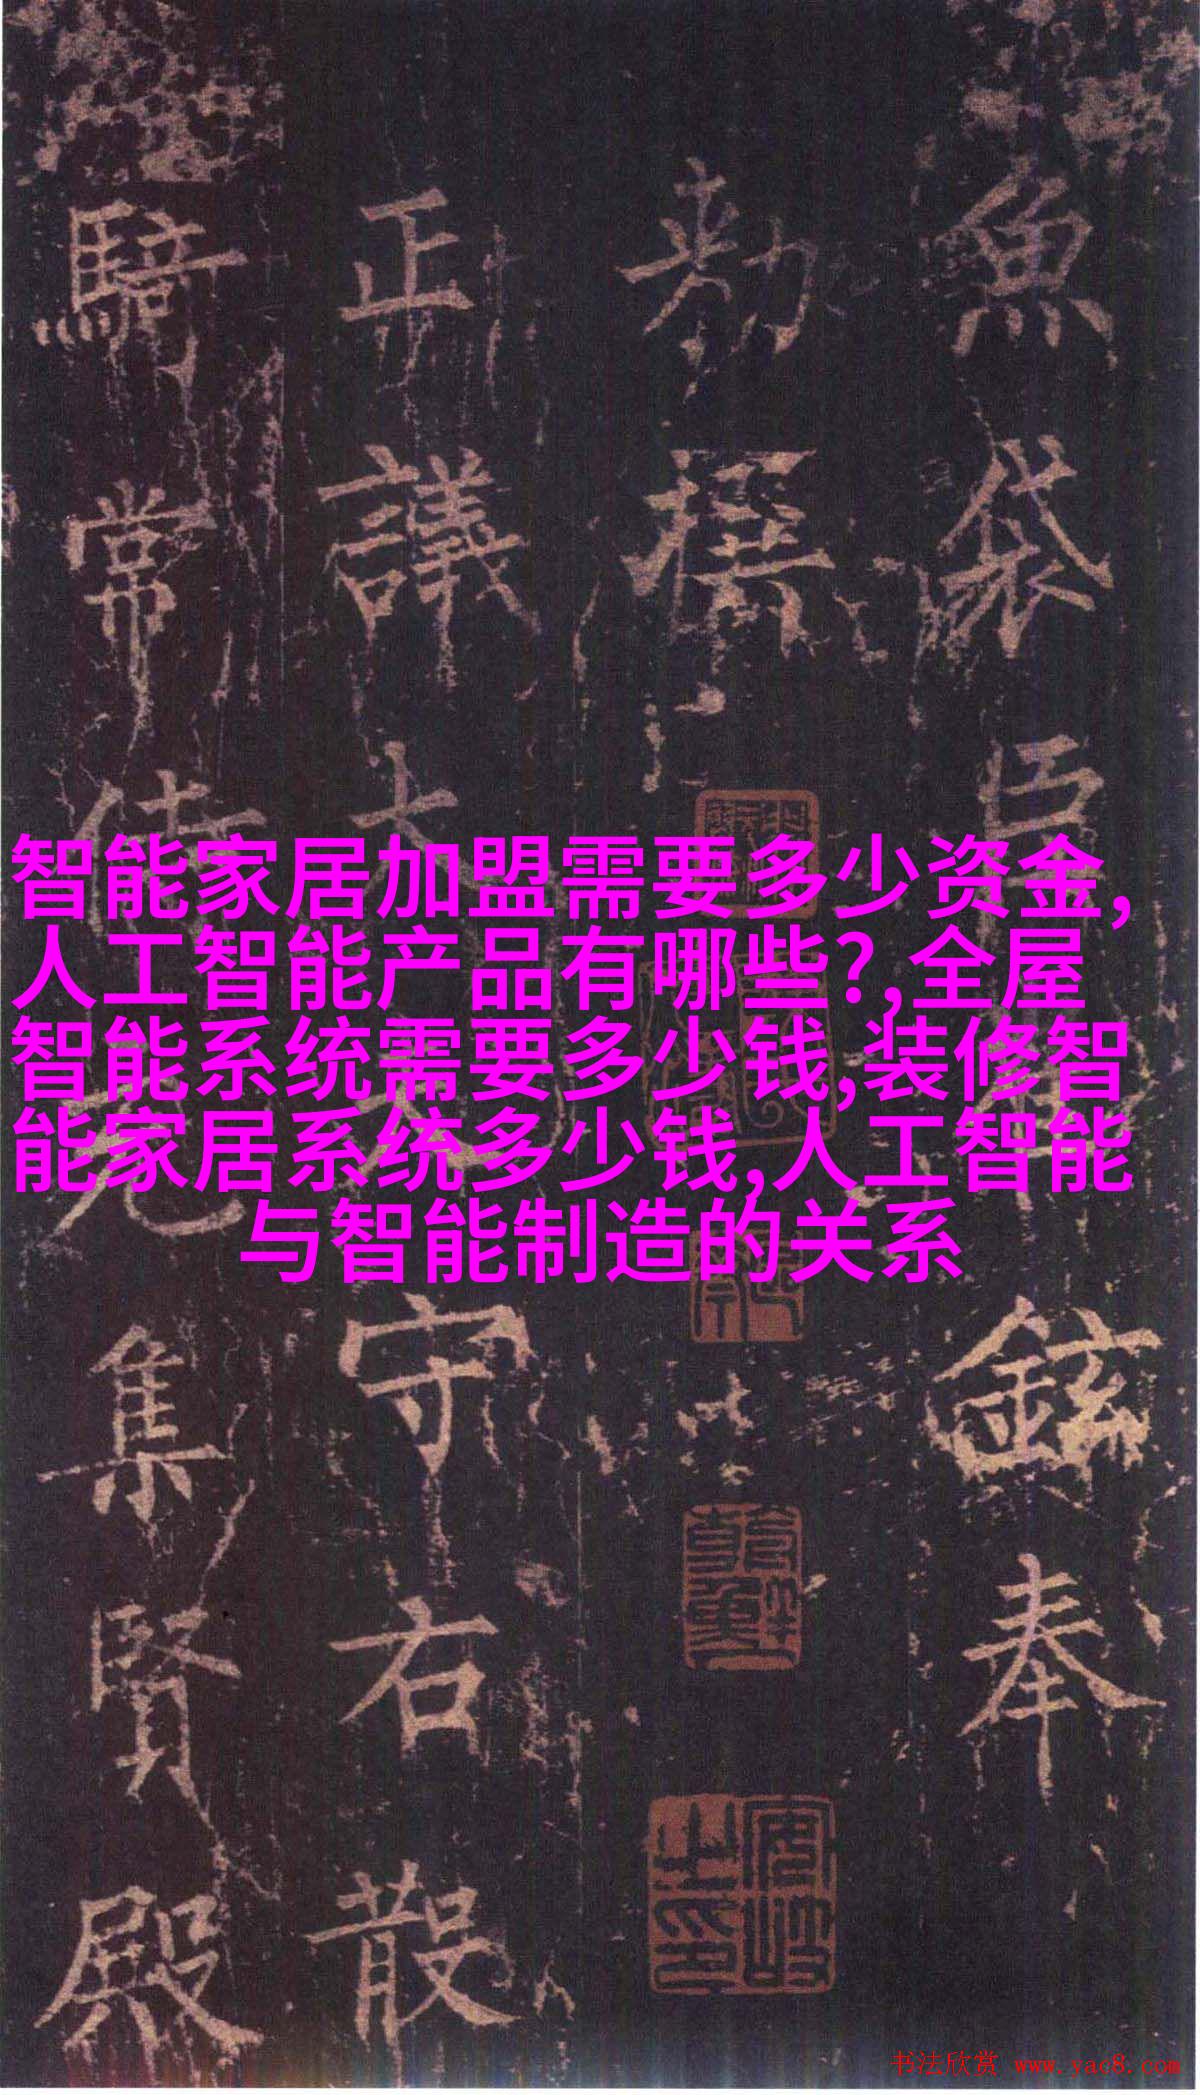 魚袋臣徐鉉奉
勑撰
正議大夫
守右散
騎常侍
集賢殿
智能家居加盟需要多少资金,
人工智能产品有哪些?,全屋
智能系统需要多少钱,装修智
能家居系统多少钱,人工智能
与智能制造的关系
书法欣赏 www.yac8.com